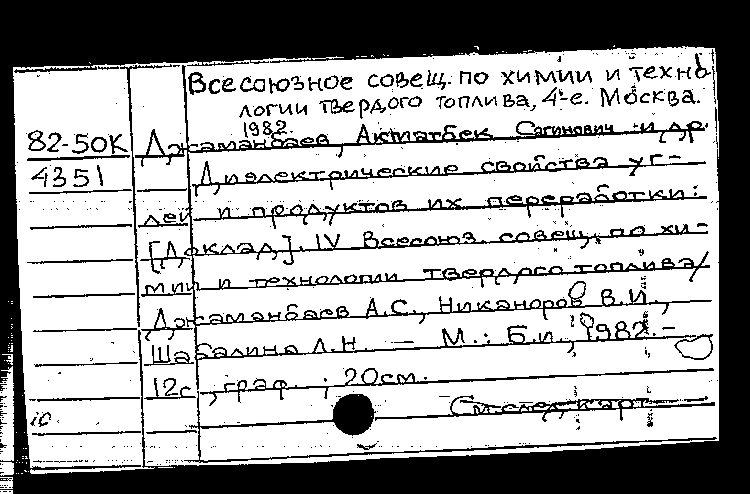 Всесоюзное совещ. по химии и техно
логии твердого топлива, 4-е. Москва.
1982.
82-50К Джаманбаев, Акматбек Сагинович и др.
4351 Диэлектрические свойства уг-
лей и продуктов их переработки:
[Доклад]. IV Всесоюз. совещ. по хи-
мии и технологии твердого топлива/
Джаманбаев А.С., Никаноров В.И.,
Шабалина Л.Н. — М.: Б.и., 1982.-
12с, граф. ; 20см.
См.след.карт
10